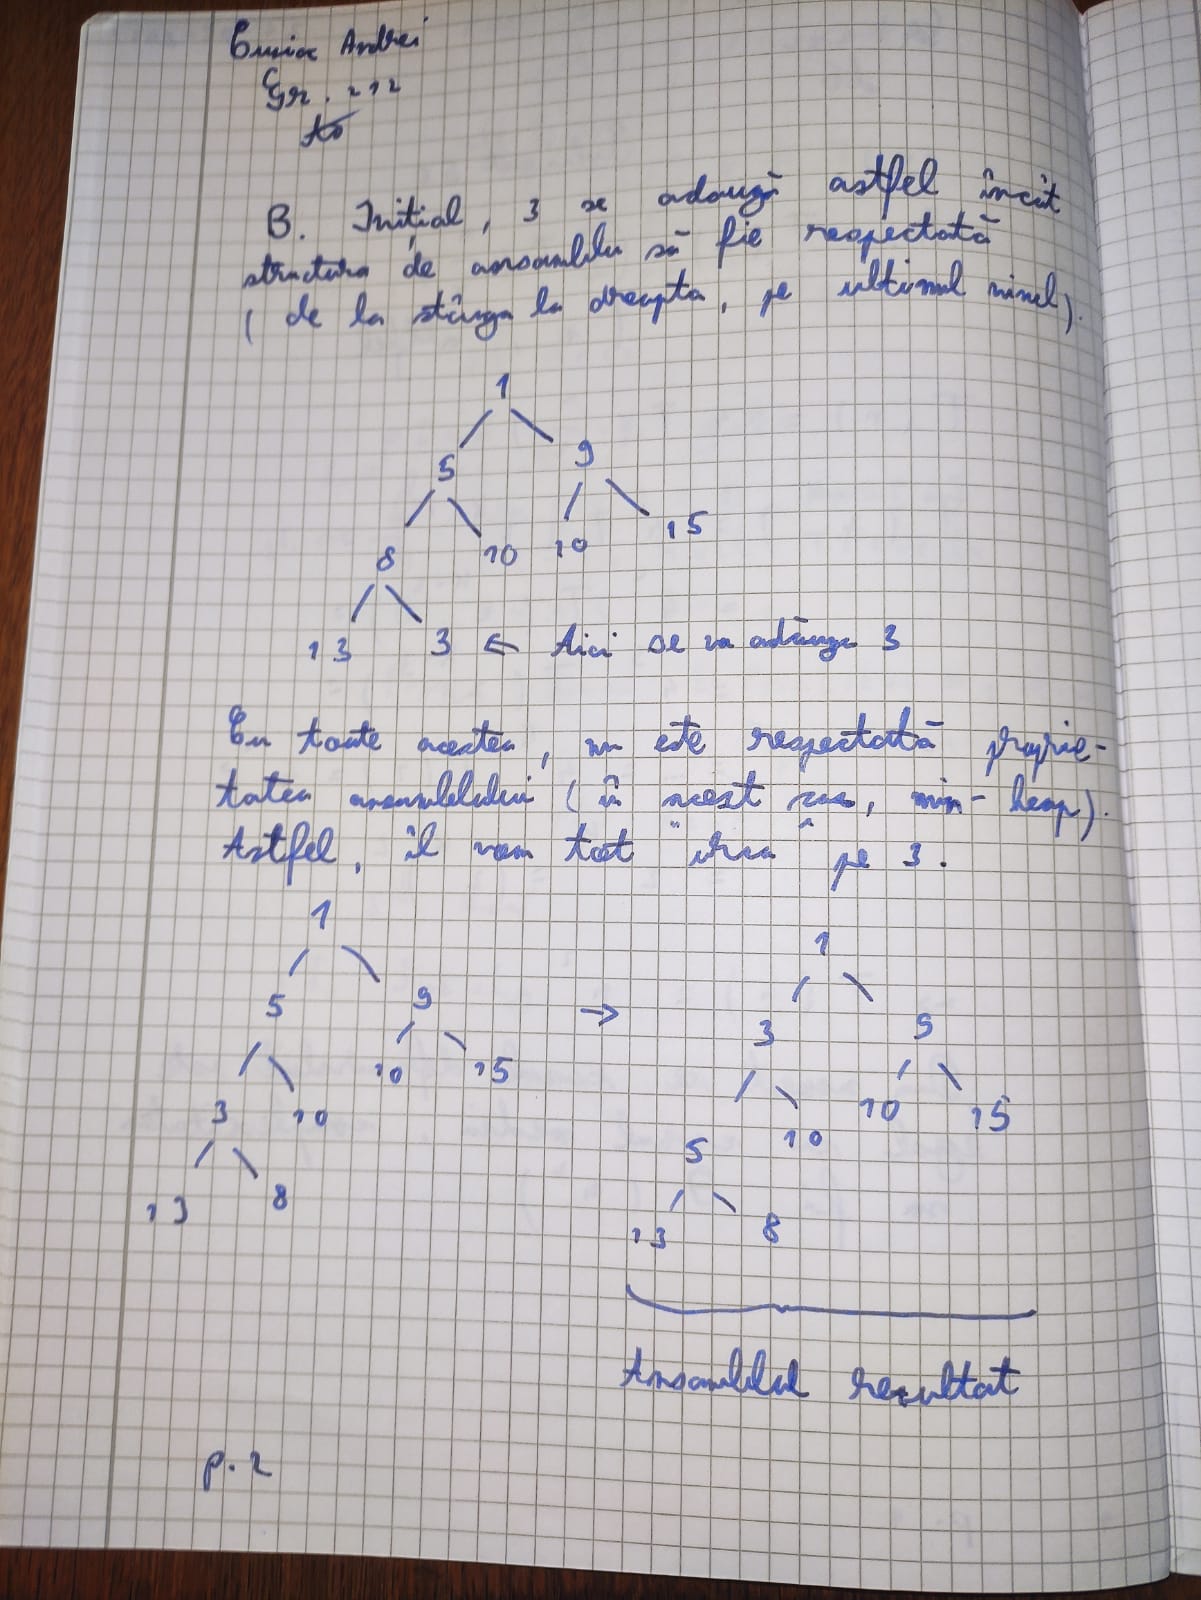 Andrei
Gr. 212
B. Inițial, 3 se adaugă astfel încît
structura de ansamblu să fie respectată
(de la stânga la dreapta, pe ultimul nivel).
1
5 9
8 10 10 15
13 3 ← Aici se va adăuga 3
Cu toate acestea, nu este respectată proprie-
tatea ansamblului (în acest caz, min-heap).
Astfel, îl vom tot "urca" pe 3.
1
5 9
3 10 10 15
13 8
→
1
3 9
5 10 10 15
13 8
Ansamblul rezultat
p. 2